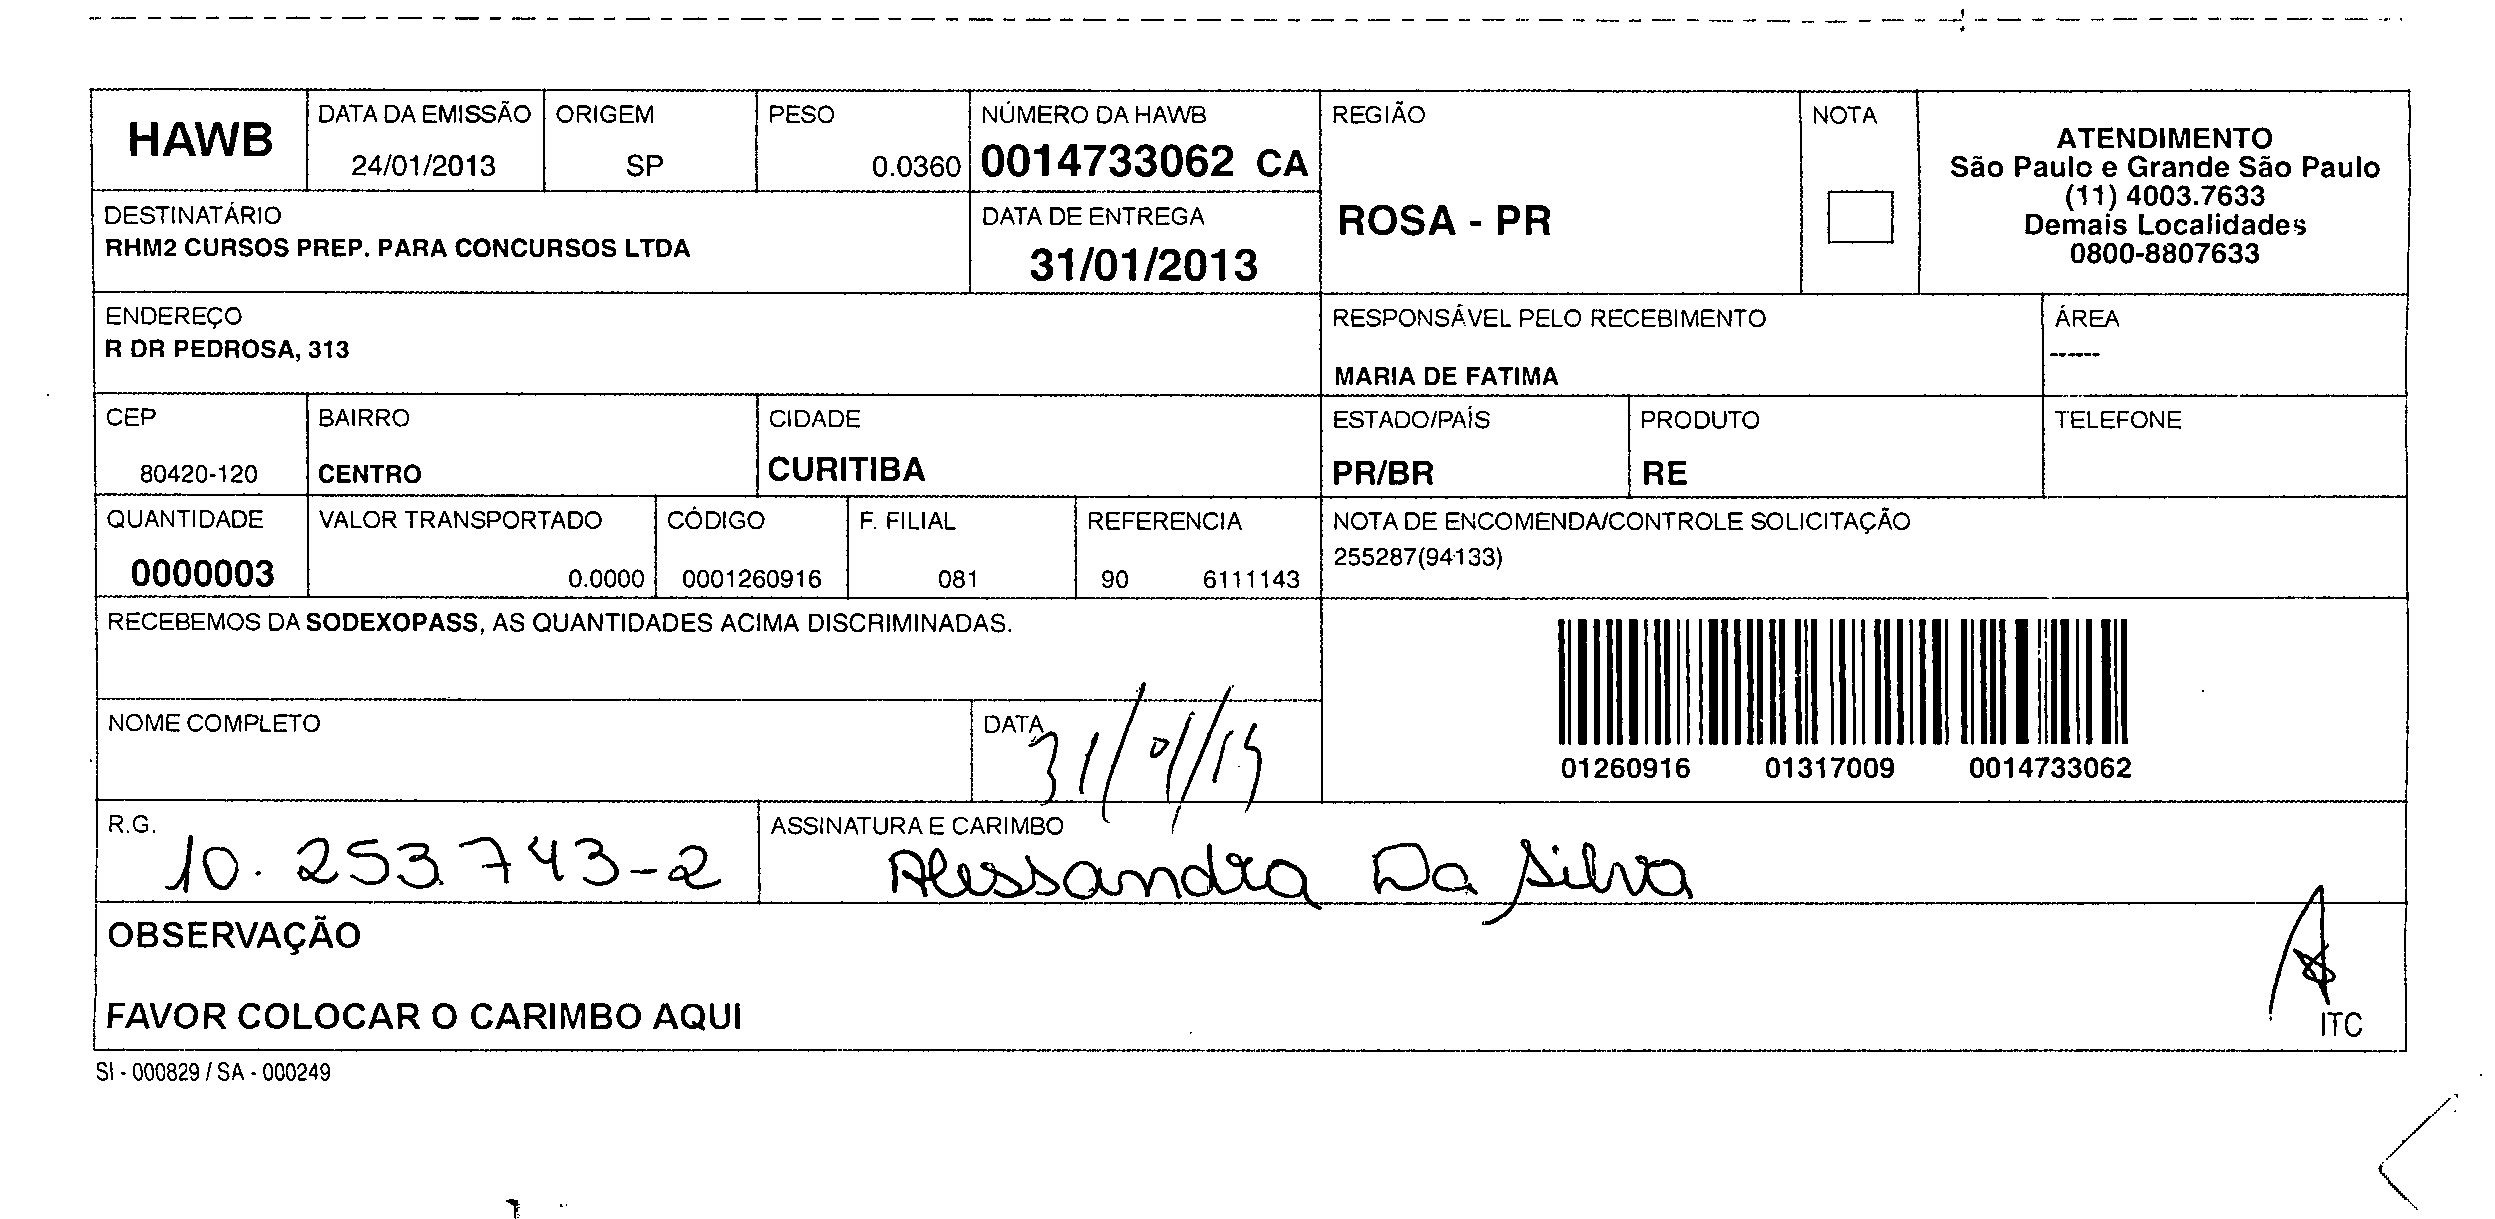 HAWB
DATA DA EMISSÃO
24/01/2013
ORIGEM
SP
PESO
0.0360
NÚMERO DA HAWB
0014733062 CA
REGIÃO
ROSA - PR
NOTA
ATENDIMENTO
São Paulo e Grande São Paulo
(11) 4003.7633
Demais Localidades
0800-8807633
DESTINATÁRIO
RHM2 CURSOS PREP. PARA CONCURSOS LTDA
DATA DE ENTREGA
31/01/2013
ENDEREÇO
R DR PEDROSA, 313
RESPONSÁVEL PELO RECEBIMENTO
MARIA DE FATIMA
ÁREA
------
CEP
80420-120
BAIRRO
CENTRO
CIDADE
CURITIBA
ESTADO/PAÍS
PR/BR
PRODUTO
RE
TELEFONE
QUANTIDADE
0000003
VALOR TRANSPORTADO
0.0000
CÓDIGO
0001260916
F. FILIAL
081
REFERENCIA
90 6111143
NOTA DE ENCOMENDA/CONTROLE SOLICITAÇÃO
255287(94133)
RECEBEMOS DA SODEXOPASS, AS QUANTIDADES ACIMA DISCRIMINADAS.
01260916 01317009 0014733062
NOME COMPLETO
DATA
31/01/13
R.G.
10.253.743-2
ASSINATURA E CARIMBO
Alessandra Da Silva
OBSERVAÇÃO
FAVOR COLOCAR O CARIMBO AQUI
ITC
SI - 000829 / SA - 000249